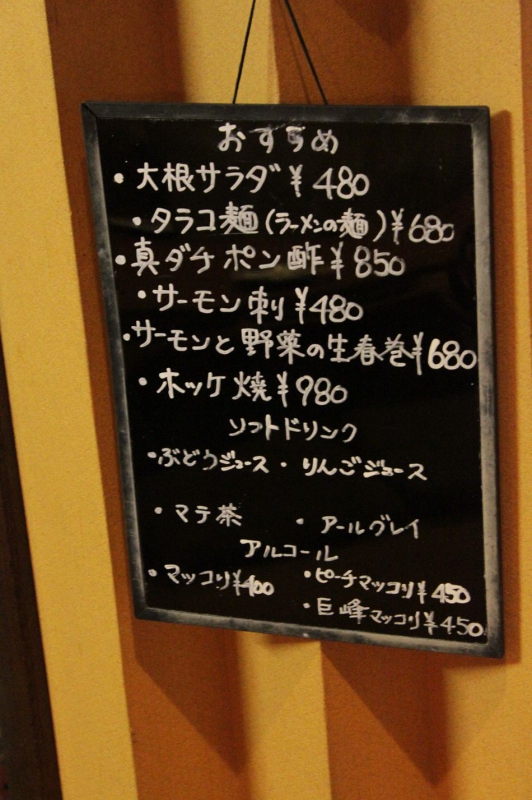 おすすめ
・大根サラダ¥480
・タラコ麺(ラーメンの麺)¥680
・真ダチポン酢¥850
・サーモン刺¥480
・サーモンと野菜の生春巻¥680
・ホッケ焼¥980
ソフトドリンク
・ぶどうジュース・りんごジュース
・マテ茶 ・アールグレイ
アルコール
・マッコリ¥400 ・ピーチマッコリ¥450
・巨峰マッコリ¥450